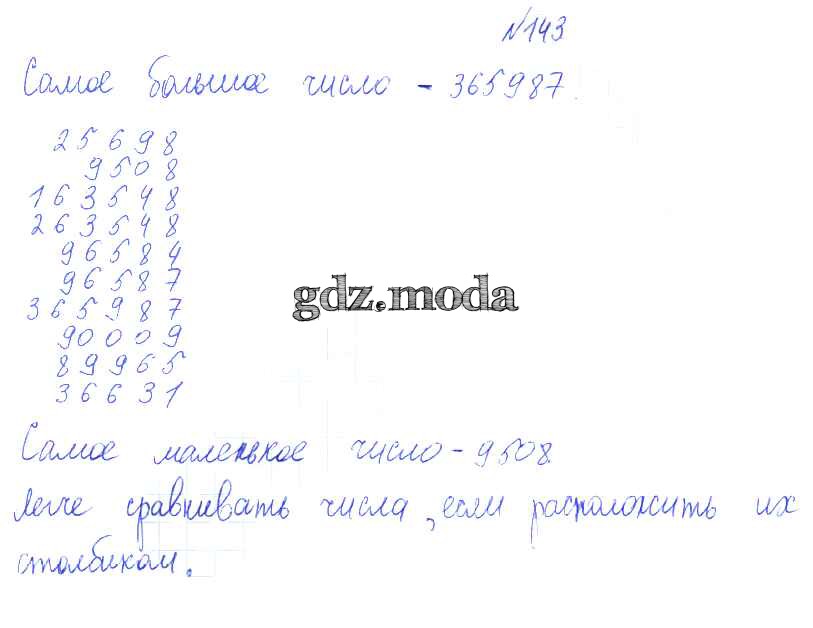 №143
Самое большое число - 365987.
25698
9508
163548
263548
96584
96587
365987
gdz.moda
90009
89965
36631
Самое маленькое число - 9508.
Легче сравнивать числа, если расположить их
столбиком.